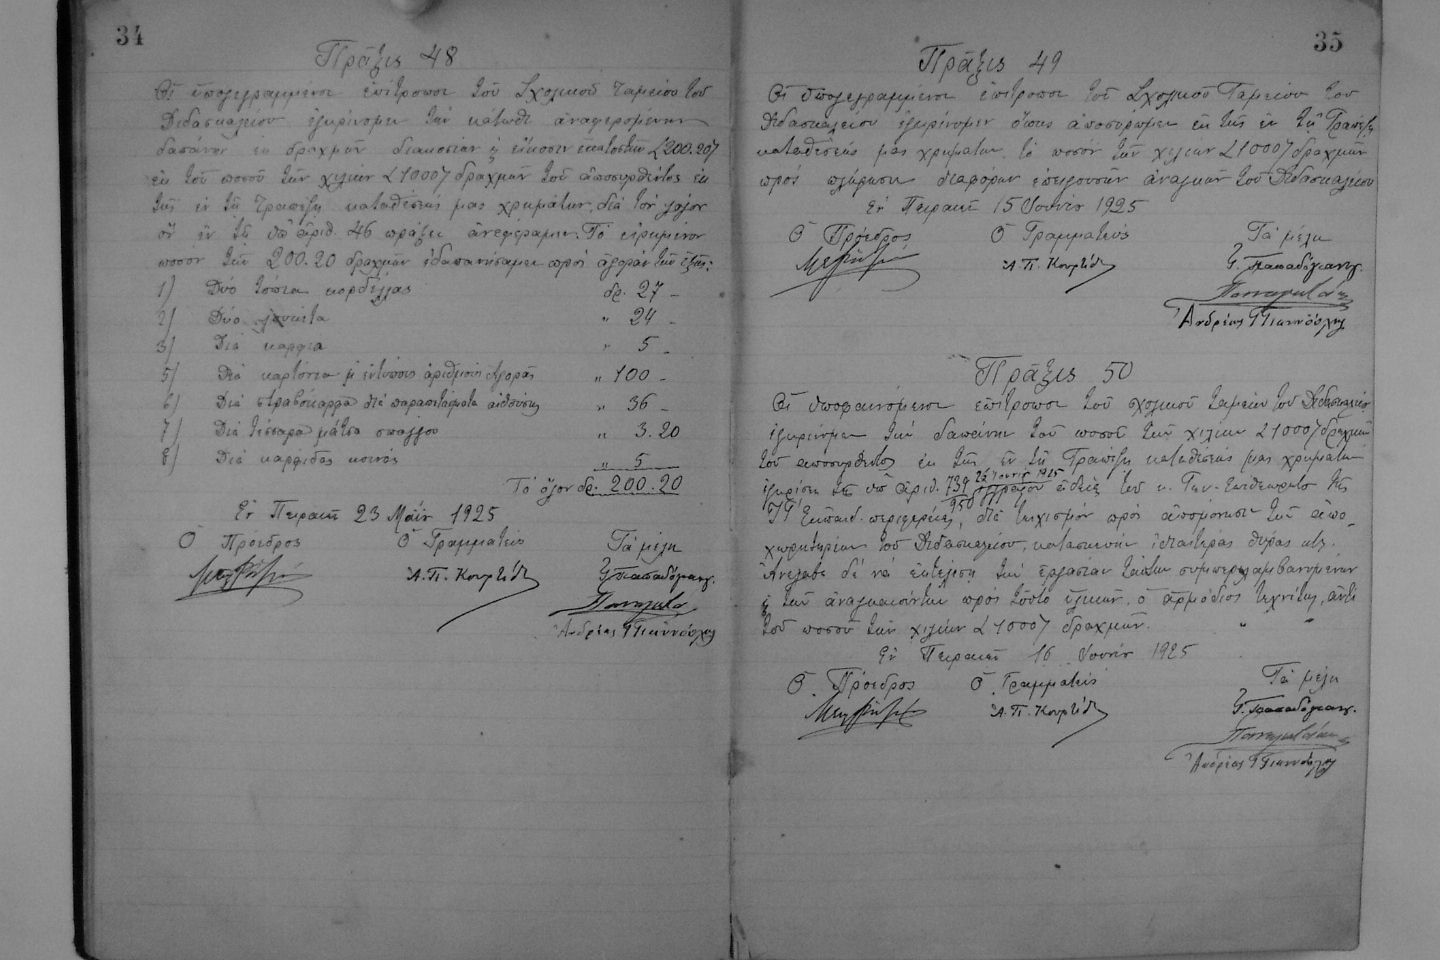 34
Πρᾶξις 48
Οἱ ὑπογεγραμμένοι ἐπίτροποι τοῦ Σχολικοῦ Ταμείου τοῦ
Διδασκαλείου ἐγκρίνομεν τὴν κάτωθι ἀναφερομένην
δαπάνην ἐκ δραχμῶν διακοσίων & εἴκοσιν ἑκατοστῶν (200.20)
ἐκ τοῦ ποσοῦ τῶν χιλίων (1000) δραχμῶν τοῦ ἀποσυρθέντος ἐκ
τῆς ἐν τῇ Τραπέζῃ καταθέσεώς μας χρημάτων, διὰ τὸν λόγον
ὃν ἐν τῇ ὑπ' ἀριθ. 46 πράξει ἀνεφέραμεν. Τὸ εἰρημένον
ποσὸν τῶν 200.20 δραχμῶν ἐδαπανήσαμεν πρὸς ἀγορὰν τῶν ἑξῆς:
1) Δύο τόπια κορδέλλας δρ. 27 -
2) Δύο λουκέτα " 24 -
3) Διὰ καρφιά " 5 -
5) Διὰ καρτόνια μὲ ἐντύπους ἀριθμοὺς ἀγορᾶς " 100 -
6) Διὰ στραβόκαρφα διὰ παραπετάσματα αἰθούσης " 36 -
7) Διὰ τέσσαρα μάτσα σπάγγου " 3.20
8) Διὰ καρφίδας κοινὰς " 5
Τὸ ὅλον δρ. 200.20
Ἐν Πειραιεῖ 23 Μαΐου 1925
Ὁ Πρόεδρος Ὁ Γραμματεὺς Τὰ μέλη
Α. Π. Κουρτίδης Γ. Παπαδόγιανν.
Ἀνδρέας Γιαννόπουλος
35
Πρᾶξις 49
Οἱ ὑπογεγραμμένοι ἐπίτροποι τοῦ Σχολικοῦ Ταμείου τοῦ
Διδασκαλείου ἐγκρίνομεν ὅπως ἀποσύρωμεν ἐκ τῆς ἐν τῇ Τραπέζῃ
καταθέσεώς μας χρημάτων τὸ ποσὸν τῶν χιλίων (1000) δραχμῶν
πρὸς πλήρωσιν διαφόρων ἐπειγουσῶν ἀναγκῶν τοῦ Διδασκαλείου
Ἐν Πειραιεῖ 15 Ἰουνίου 1925
Ὁ Πρόεδρος Ὁ Γραμματεὺς Τὰ μέλη
Α. Π. Κουρτίδης Γ. Παπαδόγιανν.
Ἀνδρέας Γιαννόπουλος
Πρᾶξις 50
Οἱ ὑποφαινόμενοι ἐπίτροποι τοῦ σχολικοῦ ταμείου τοῦ Διδασκαλείου
ἐγκρίνομεν τὴν δαπάνην τοῦ ποσοῦ τῶν χιλίων (1000) δραχμῶν
τοῦ ἀποσυρθέντος ἐκ τῆς ἐν τῇ Τραπέζῃ καταθέσεώς μας χρημάτων
ἐγκρίσει τῇ ὑπ' ἀριθ. 739/950 24 Ἰουνίου 1925 ἔγγραφον ἀδείᾳ τοῦ κ. Γεν. Ἐπιθεωρητοῦ τῆς
ΙΓ' Ἐκπαιδ. περιφερείας, διὰ τοιχισμὸν πρὸς ἀπομόνωσιν τῶν ἀπο-
χωρητηρίων τοῦ Διδασκαλείου, κατασκευὴν ἰδιαιτέρας θύρας κτλ.
Ἀνέλαβε δὲ νὰ ἐκτελέσῃ τὴν ἐργασίαν ταύτην συμπεριλαμβανομένων
& τῶν ἀναγκαιούντων πρὸς τοῦτο ὑλικῶν, ὁ ἁρμόδιος τεχνίτης, ἀντὶ
τοῦ ποσοῦ τῶν χιλίων (1000) δραχμῶν. " "
Ἐν Πειραιεῖ 16 Ἰουνίου 1925
Ὁ Πρόεδρος Ὁ Γραμματεὺς Τὰ μέλη
Α. Π. Κουρτίδης Γ. Παπαδόγιανν.
Ἀνδρέας Γιαννόπουλος